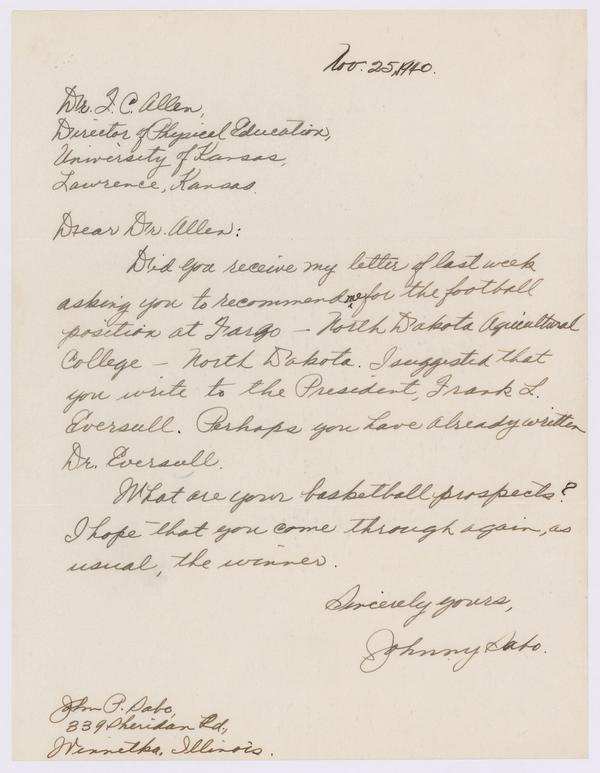 Nov. 25, 1940.
Dr. F. C. Allen,
Director of Physical Education,
University of Kansas,
Lawrence, Kansas.
Dear Dr. Allen:
Did you receive my letter of last week
asking you to recommend me for the football
position at Fargo - North Dakota Agricultural
College - North Dakota. I suggested that
you write to the President, Frank L.
Eversull. Perhaps you have already written
Dr. Eversull.
What are your basketball prospects?
I hope that you come through again, as
usual, the winner.
Sincerely yours,
Johnny Sabo.
John P. Sabo,
339 Sheridan Rd,
Winnetka, Illinois.